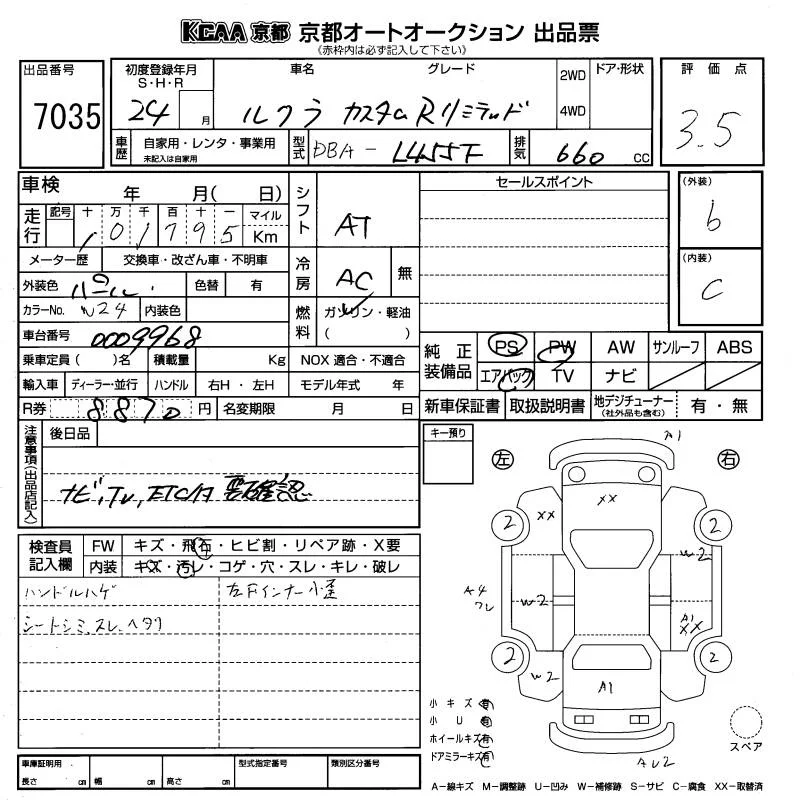 KCAA 京都 京都オートオークション 出品票
(赤枠内は必ず記入して下さい)
出品番号
7035
初度登録年月
S・H・R
24 月
車名
グレード
ルクラ カスタム Rリミテッド
2WD
4WD
ドア・形状
評価点
3.5
車歴
自家用・レンタ・事業用
未記入は自家用
型式
DBA- L455F
排気
660 CC
車検 年 月( 日)
走行
記号 十 万 千 百 十 一
101795
マイル
Km
メーター歴 交換車・改ざん車・不明車
外装色 パール 色替 有
カラーNo. W24 内装色
車台番号 0009968
乗車定員( )名 積載量 Kg NOX 適合・不適合
輸入車 ディーラー・並行 ハンドル 右H・左H モデル年式 年
R券 8870 円 名変期限 月 日
シフト
AT
冷房
AC 無
燃料
ガソリン・軽油
( )
セールスポイント
(外装)
b
(内装)
C
純正装備品
PS PW AW サンルーフ ABS
エアバック TV ナビ
新車保証書 取扱説明書 地デジチューナー
(社外品も含む)
有・無
注意事項(出品店記入)
後日品
ナビ,TV,ETC付 要確認
キー預り
検査員記入欄
FW キズ・飛石・ヒビ割・リペア跡・X要
内装 キズ・汚レ・コゲ・穴・スレ・キレ・破レ
ハンドルハゲ
左Fインナー小歪
シートシミ,スレ,ヘタリ
左 右
A1
XX
XX
2
2
W2
A4
ワレ
W2
A1
XX
2
2
W2
A1
AU2
小キズ 有
小U 有
ホイールキズ 有
ドアミラーキズ 有
スペア
車庫証明用
長さ cm 幅 cm 高さ cm
型式指定番号
類別区分番号
A-線キズ M-調整跡 U-凹み W-補修跡 S-サビ C-腐食 XX-取替済